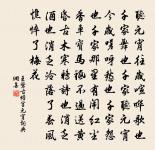 聽元宵往歲喧嘩歌也
千家舞也千家聽元宵
今歲嗟呀愁也千家怨
也千家那里有鬧紅塵
香車寶馬祗不過送黃
昏古木寒鴉詩也消乏
酒也消乏冷落了春風
憔悴了梅花
王磐古蟾宮元宵詞典
網書